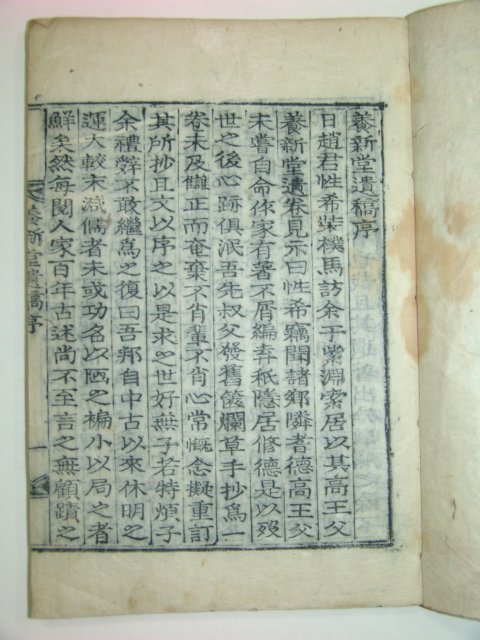 養新堂遺稿序
日趙君性希裝樸馬訪余于索淵索居以其高王父
養新堂遺卷見示曰性希竊聞諸鄕隣耆德高王父
未嘗自命作家有著不屑編弆秪隱居修德是以殁
世之後心跡俱泯吾先叔父發舊篋爛草手抄爲一
卷未及讎正而奄棄不肖輩不肖心常慨念擬重訂
其所抄且文以序之以是求之世好無子若特煩子
余禮辤不敢繼爲之復曰吾邦自中古以來休明之
運大較末減儒者未或功名以陋之褊小以局之者
鮮矣然每閱人家百年古述尚不至言之無顧蹟之
養新堂遺稿序
一